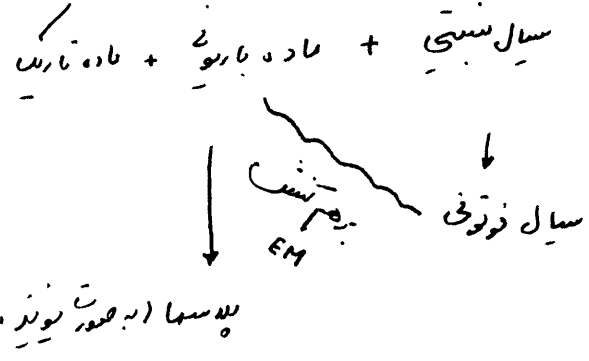 سیال نسبتی + ماده باریونی + ماده تاریک
برهمکنش
EM
سیال فوتونی
پلاسما (به صورت یونیزه